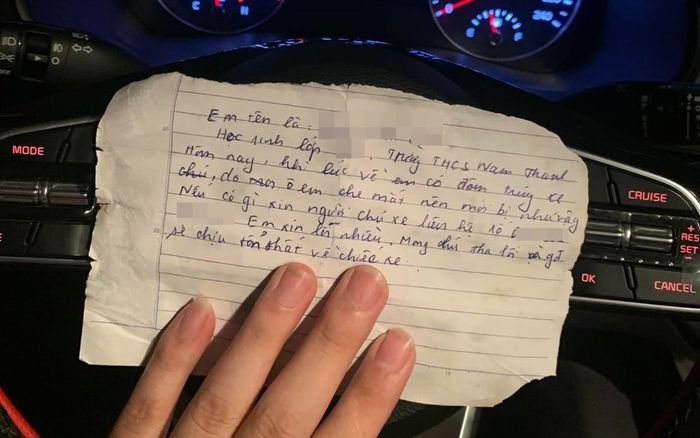 C H
240
MODE
CRUISE
RES
SET
OK
CANCEL
Em tên là:
Học sinh lớp . Trường THCS Nam Thanh
Hôm nay, khi lúc về em có đâm trúng xe
chú, do ô em che mắt nên mới bị như vậy
Nếu có gì xin người chủ xe liên hệ số 6
Em xin lỗi nhiều. Mong chú tha lỗi và gđ
sẽ chịu tổn thất về chiếc xe.